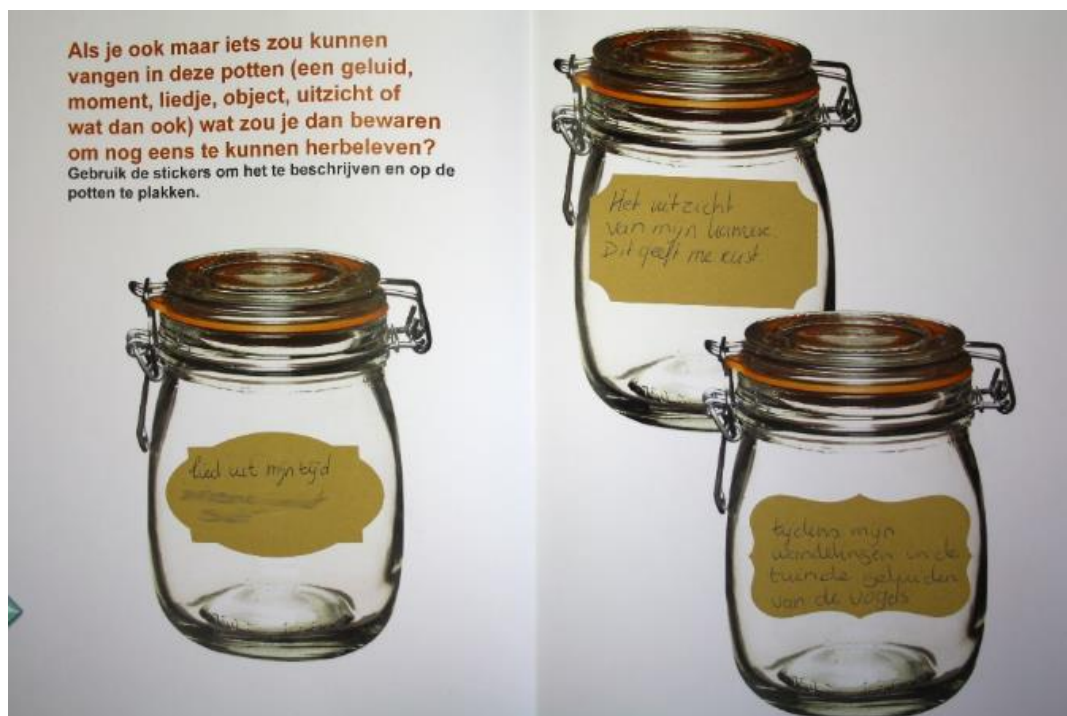 Als je ook maar iets zou kunnen
vangen in deze potten (een geluid,
moment, liedje, object, uitzicht of
wat dan ook) wat zou je dan bewaren
om nog eens te kunnen herbeleven?
Gebruik de stickers om het te beschrijven en op de
potten te plakken.
lied uit mijn tijd
Het uitzicht
van mijn kamer.
Dit geeft me rust
tijdens mijn
wandelingen in de
tuin de geluiden
van de vogels